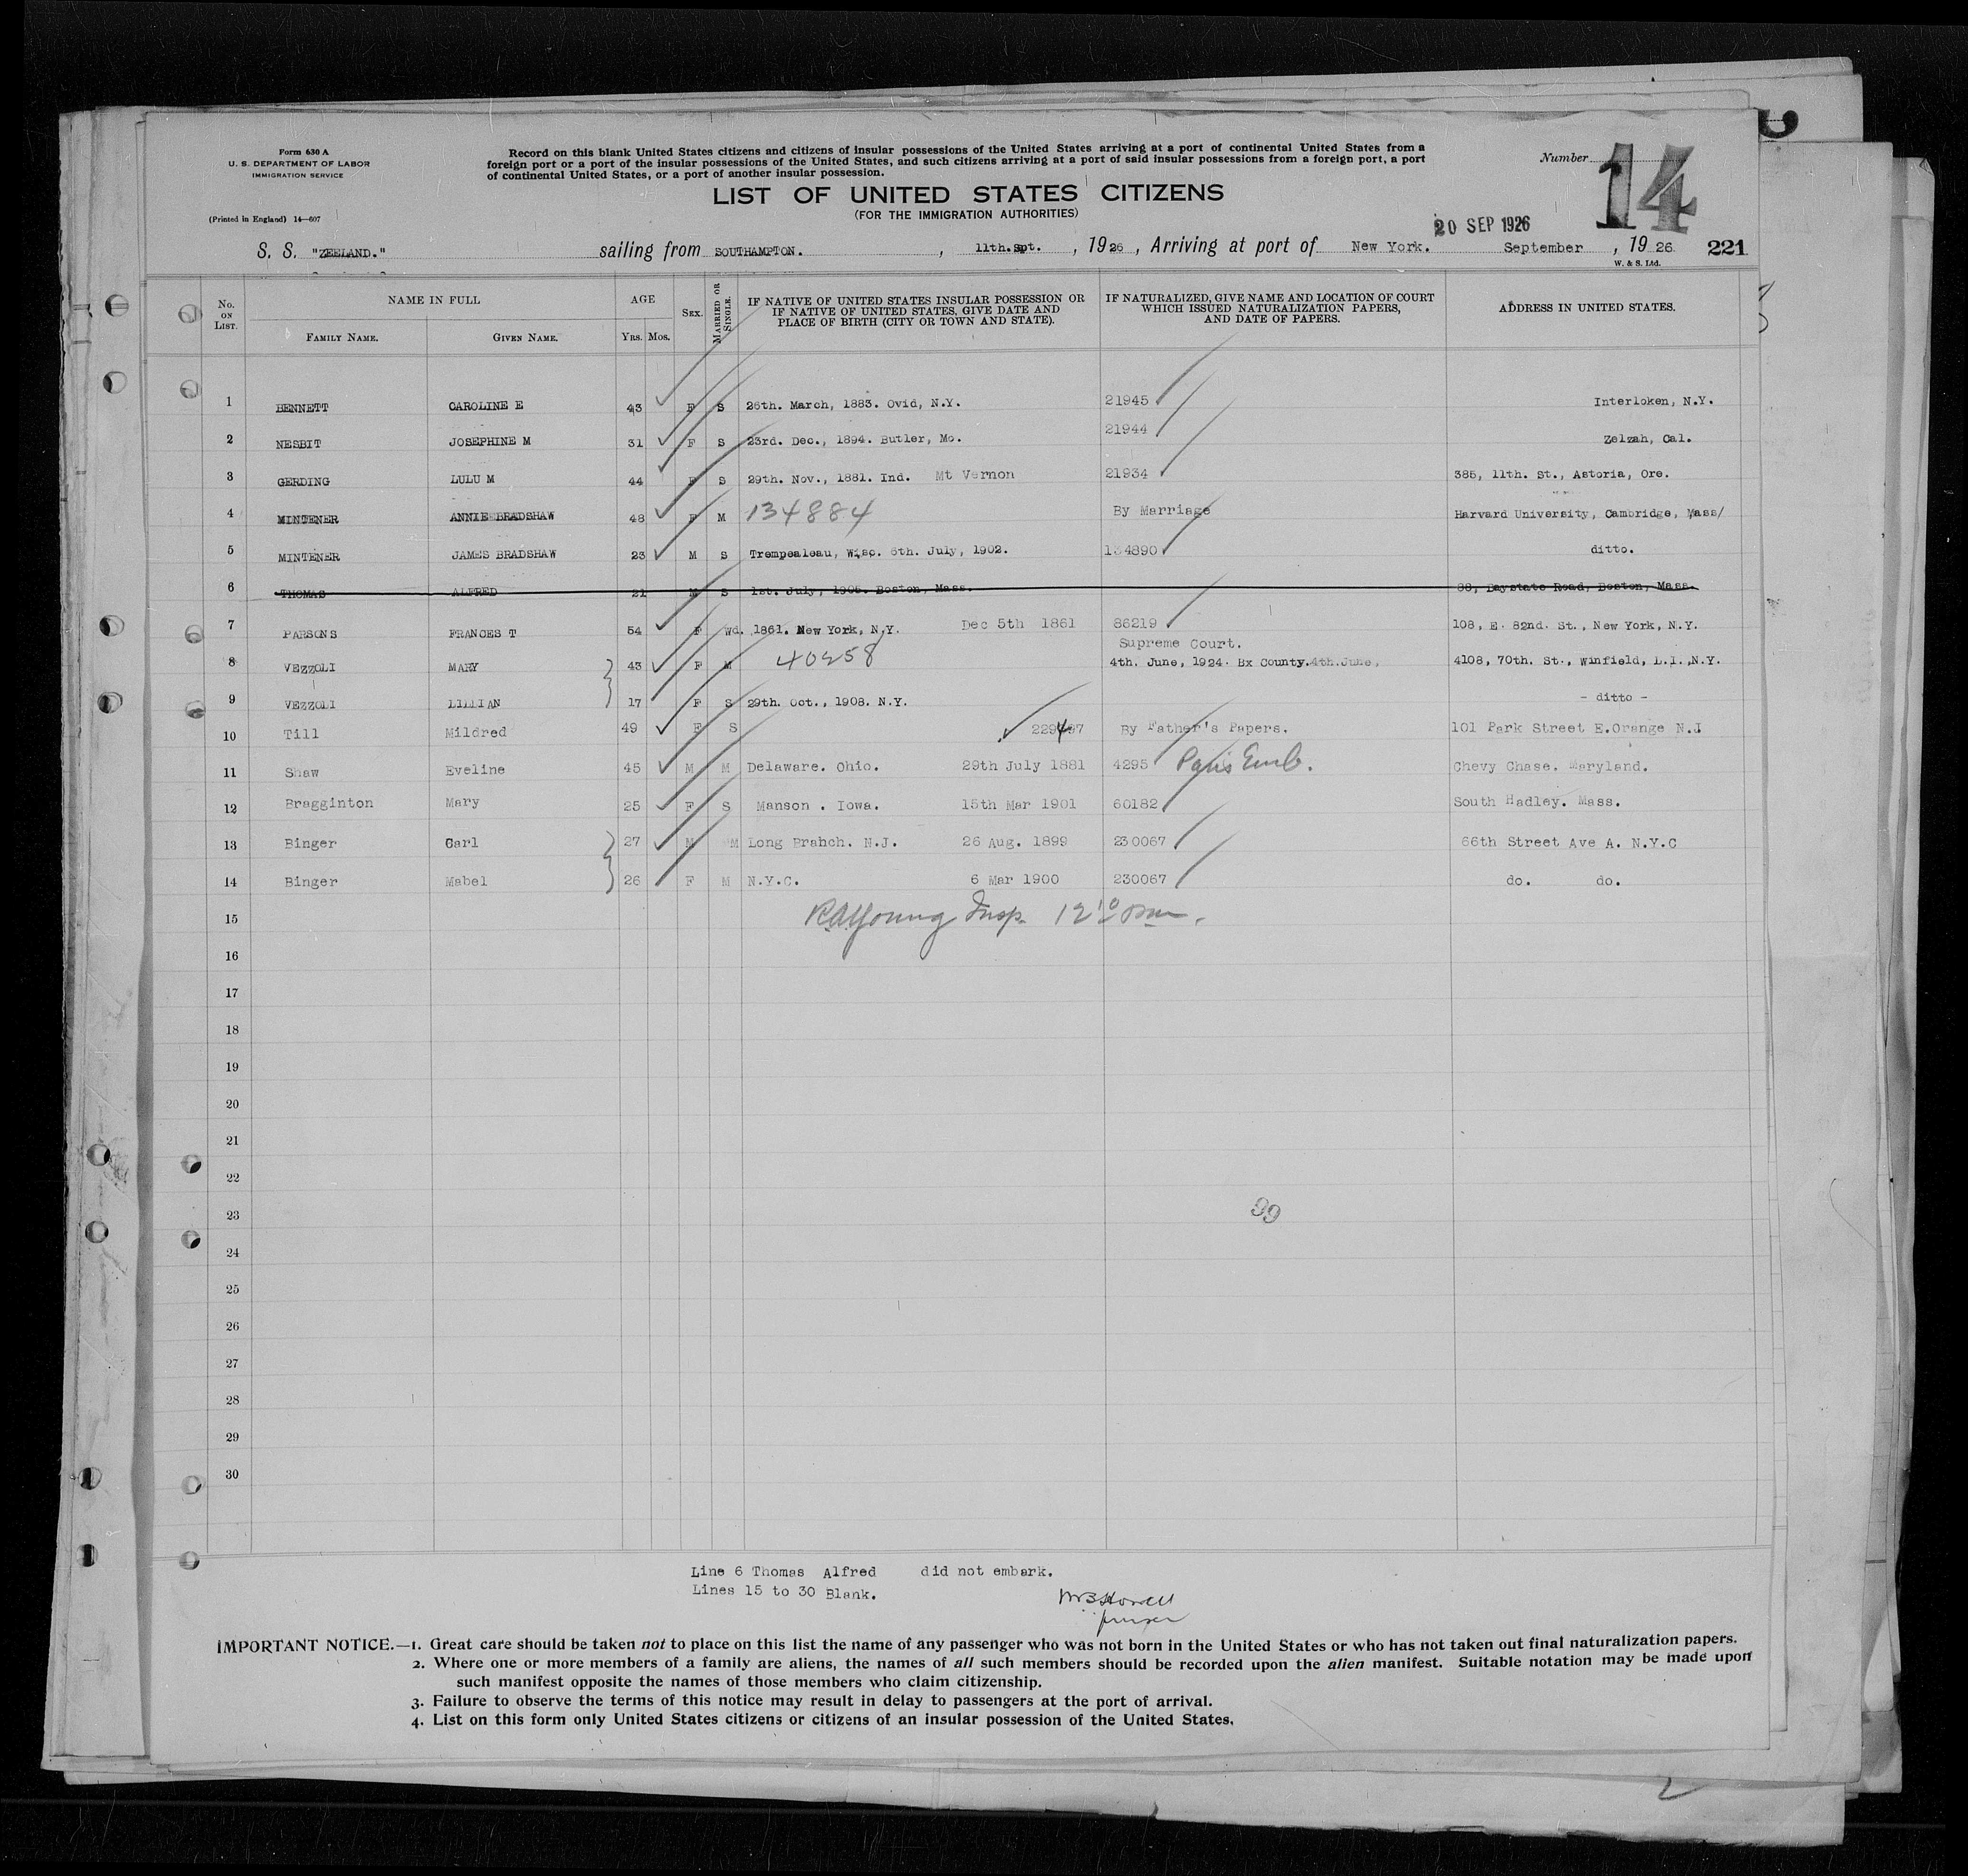 Form 630 A
U. S. DEPARTMENT OF LABOR
IMMIGRATION SERVICE
(Printed in England) 14—607
Record on this blank United States citizens and citizens of insular possessions of the United States arriving at a port of continental United States from a
foreign port or a port of the insular possessions of the United States, and such citizens arriving at a port of said insular possessions from a foreign port, a port
of continental United States, or a port of another insular possession.
Number 14
LIST OF UNITED STATES CITIZENS
(FOR THE IMMIGRATION AUTHORITIES)
20 SEP 1926
S. S. "ZEELAND." sailing from SOUTHAMPTON. , 11th.Spt. , 1926 , Arriving at port of New York. September , 1926 221
W. & S. Ltd.
No. ON LIST. NAME IN FULL FAMILY NAME. GIVEN NAME. AGE YRS. MOS. SEX. MARRIED OR SINGLE. IF NATIVE OF UNITED STATES INSULAR POSSESSION OR IF NATIVE OF UNITED STATES, GIVE DATE AND PLACE OF BIRTH (CITY OR TOWN AND STATE). IF NATURALIZED, GIVE NAME AND LOCATION OF COURT WHICH ISSUED NATURALIZATION PAPERS, AND DATE OF PAPERS. ADDRESS IN UNITED STATES.
1 BENNETT CAROLINE E 43 F S 26th. March, 1883. Ovid, N.Y. 21945 Interloken, N.Y.
2 NESBIT JOSEPHINE M 31 F S 23rd. Dec., 1894. Butler, Mo. 21944 Zelzah, Cal.
3 GERDING LULU M 44 F S 29th. Nov., 1881. Ind. Mt Vernon 21934 385, 11th. St., Astoria, Ore.
4 MINTENER ANNIE BRADSHAW 48 F M 134884 By Marriage Harvard University, Cambridge, Mass/
5 MINTENER JAMES BRADSHAW 23 M S Trempealeau, Wisc. 6th. July, 1902. 134890 ditto.
6 THOMAS ALFRED 21 M S 1st. July, 1905. Boston, Mass. 88, Baystate Road, Boston, Mass.
7 PARSONS FRANCES T 54 F Wd. 1861. New York, N.Y. Dec 5th 1861 86219 108, E. 82nd. St., New York, N.Y.
8 VEZZOLI MARY 43 F M 40258 Supreme Court. 4th. June, 1924. Bx County.4th.June, 4108, 70th. St., Winfield, L.I.,N.Y.
9 VEZZOLI LILLIAN 17 F S 29th. Oct., 1908. N.Y. - ditto -
10 Till Mildred 49 F S 229497 By Father's Papers. 101 Park Street E.Orange N.J
11 Shaw Eveline 45 M M Delaware. Ohio. 29th July 1881 4295 Paris Emb. Chevy Chase. Maryland.
12 Bragginton Mary 25 F S Manson . Iowa. 15th Mar 1901 60182 South Hadley. Mass.
13 Binger Carl 27 M M Long Branch. N.J. 26 Aug. 1899 230067 66th Street Ave A. N.Y.C
14 Binger Mabel 26 F M N.Y.C. 6 Mar 1900 230067 do. do.
15 RAYoung Insp.
16
17
18
19
20
21
22
23 99
24
25
26
27
28
29
30
Line 6 Thomas Alfred did not embark.
Lines 15 to 30 Blank.
WBHowell
purser
IMPORTANT NOTICE.—1. Great care should be taken not to place on this list the name of any passenger who was not born in the United States or who has not taken out final naturalization papers.
2. Where one or more members of a family are aliens, the names of all such members should be recorded upon the alien manifest. Suitable notation may be made upon
such manifest opposite the names of those members who claim citizenship.
3. Failure to observe the terms of this notice may result in delay to passengers at the port of arrival.
4. List on this form only United States citizens or citizens of an insular possession of the United States.